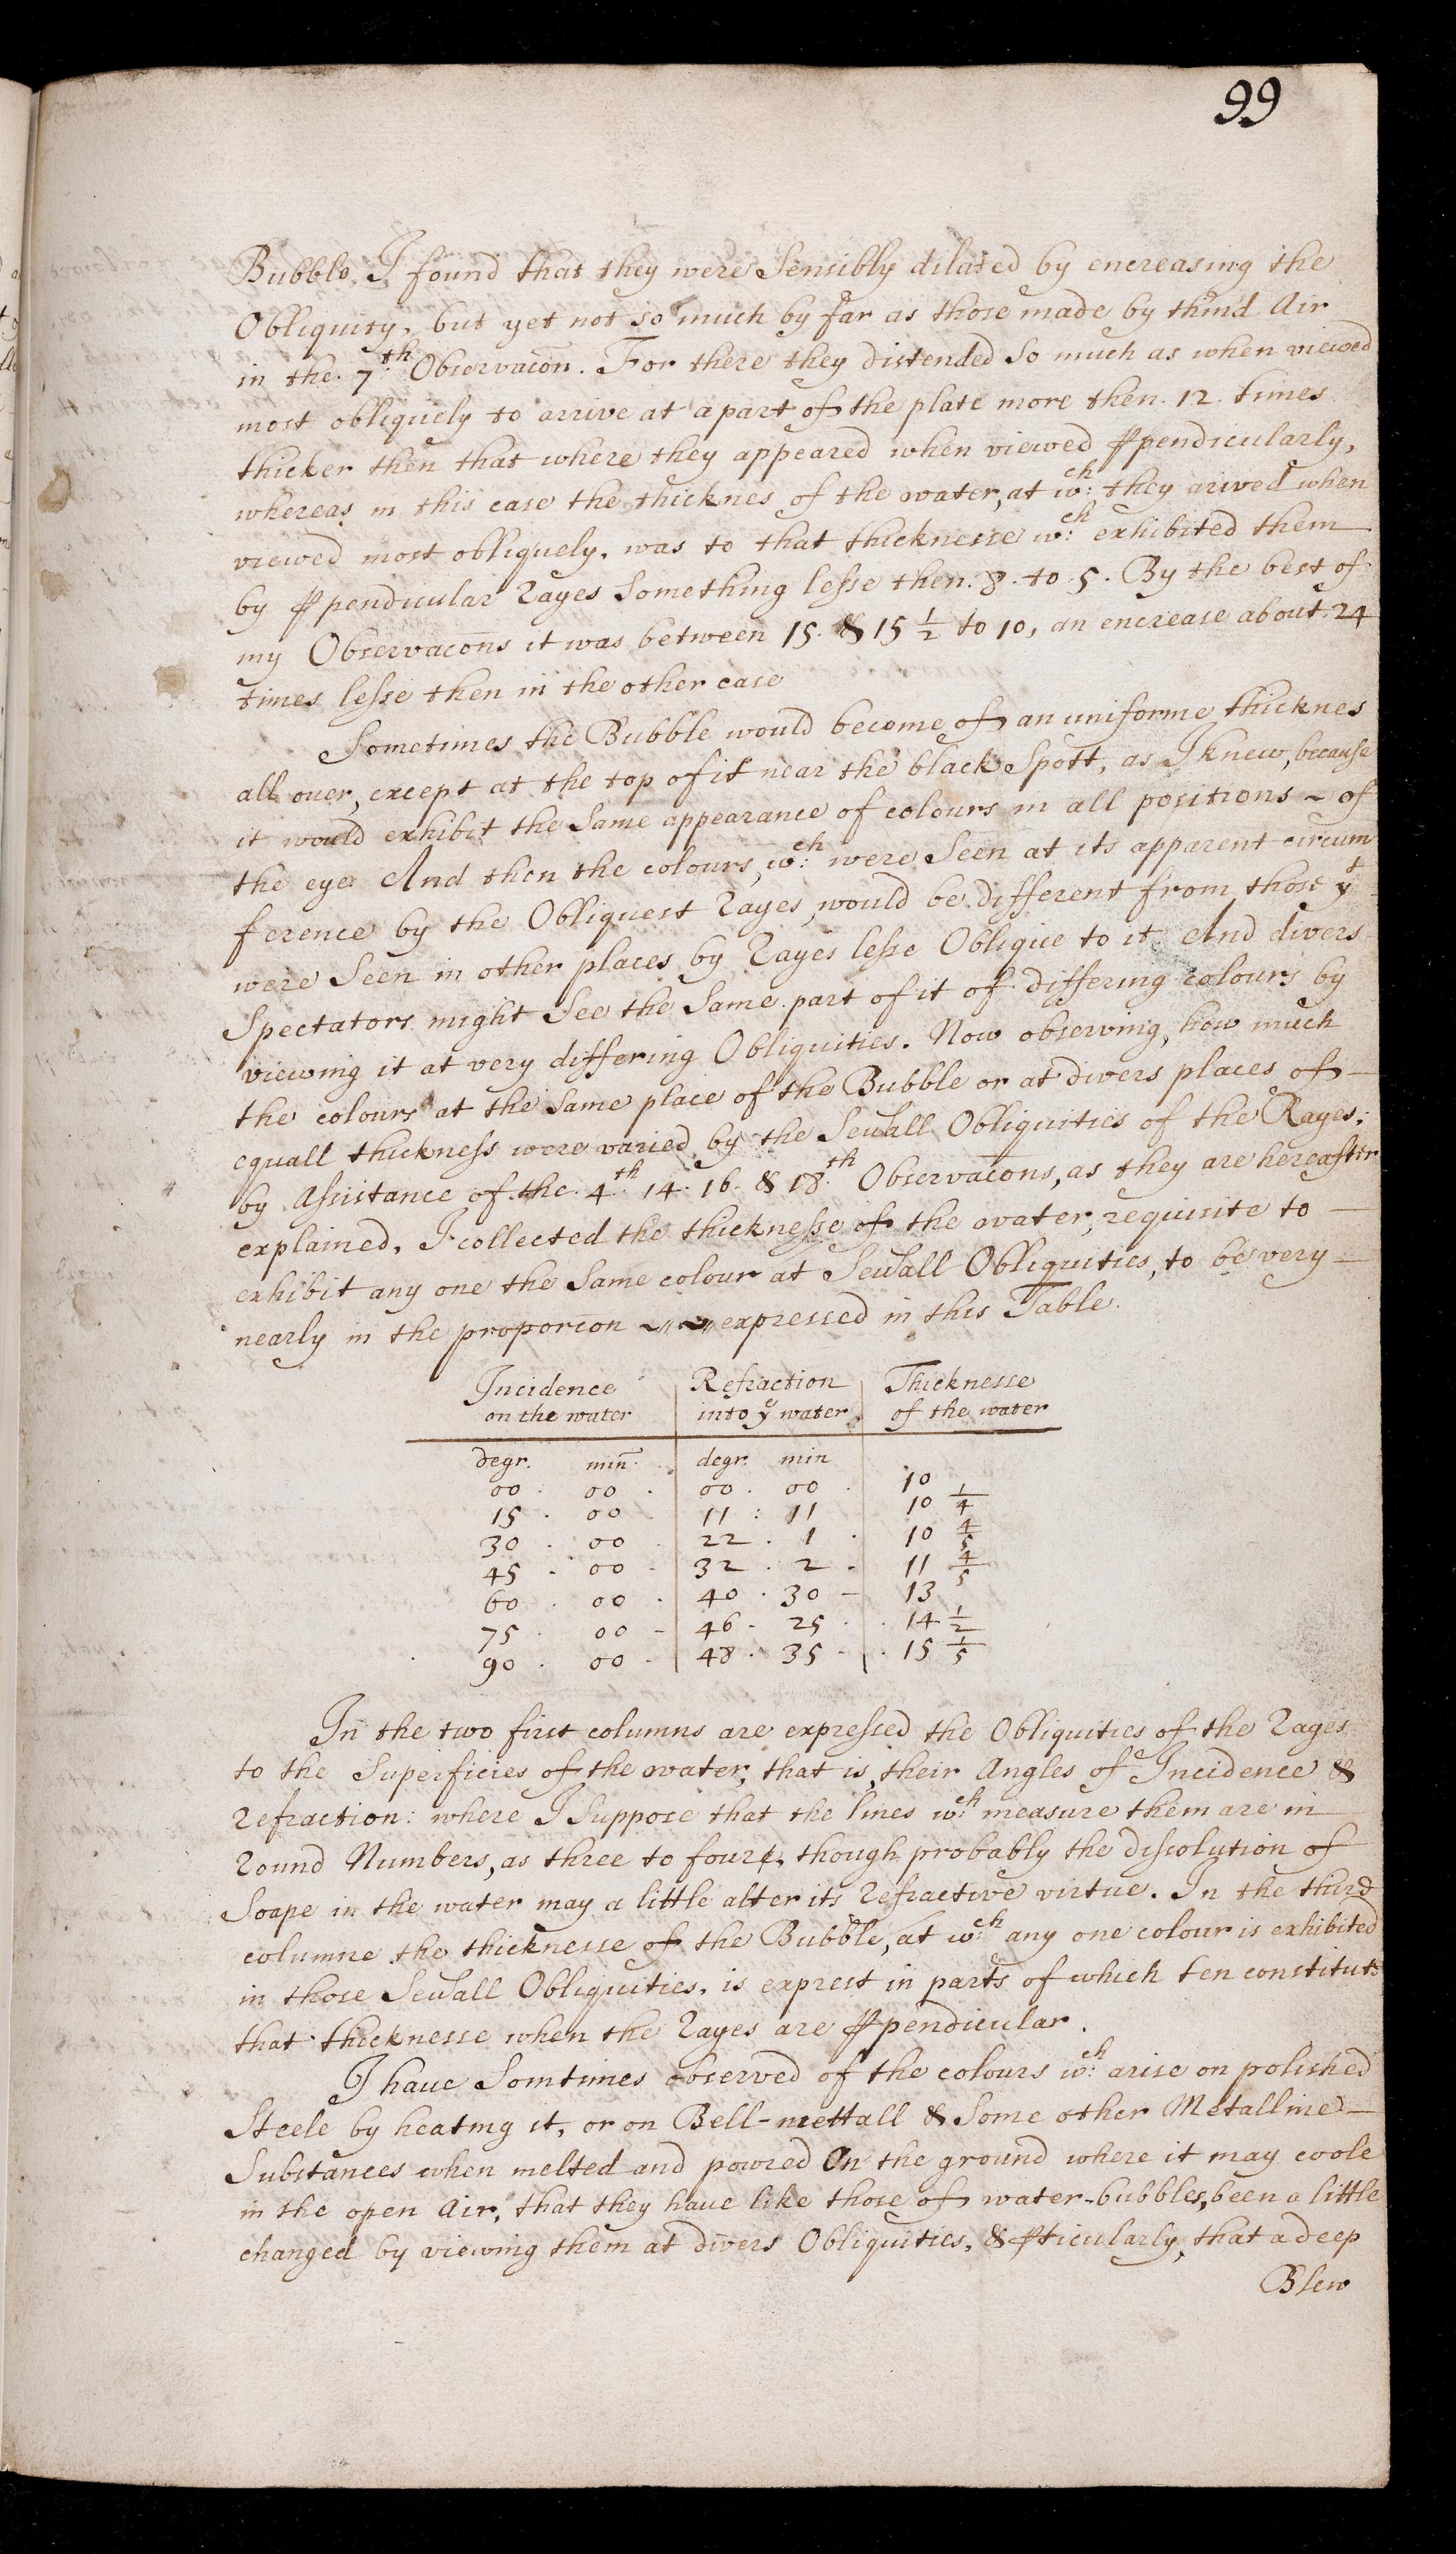 99
Bubble, I found that they were Sensibly dilated by encreasing the
Obliquity, but yet not so much by far as those made by thind Air
in the 7th Observac̄on. For there they distended So much as when viewed
most obliquely to arrive at a part of the plate more then. 12. times
thicker then that where they appeared when viewed ꝑpendicularly,
whereas in this case the thicknes of the water, at wch: they arived when
viewed most obliquely, was to that thicknesse wch: exhibited them
by ꝑpendicular Rayes Something lesse then. 8. to. 5. By the best of
my Observac̄ons it was between 15. & 15 1/2 to 10, an encrease about. 24
times lesse then in the other case
Sometimes the Bubble would become of an uniforme thicknes
all over, except at the top of it near the black Spott, as I knew, because
it would exhibit the Same appearance of colours in all positions ~ of
the eye. And then the colours, wch: were Seen at its apparent circum
ference by the Obliquest Rayes, would be different from those yt
were Seen in other places by Rayes lesse Oblique to it. And divers
Spectators might See the Same part of it of differing colours by
viewing it at very differing Obliquities. Now observing, how much
the colours at the Same place of the Bubble or at divers places of —
equall thickness were varied by the Sev̄all Obliquities of the Rayes;
by Assistance of the. 4th. 14. 16. & 18th. Observac̄ons, as they are hereafter
explained, I collected the thicknesse of the water, requisite to —
exhibit any one the Same colour at Sev̄all Obliquities, to be very —
nearly in the proporc̄on ~〃~〃 expressed in this Table.
Incidence | Refraction | Thicknesse
on the water | into ye water | of the water
degr. min̄. | degr. min
00 . 00 . | 00 . 00 . | 10
15 . 00 | 11 : 11 | 10 1/4
30 . 00 . | 22 . 1 . | 10 4/5
45 . 00 - | 32 . 2 - | 11 4/5
60 . 00 . | 40 . 30 - | 13
75 . 00 - | 46 - 25 . | 14 1/2
90 . 00 - | 48 . 35 - | 15 1/5
In the two first columns are expressed the Obliquities of the Rayes
to the Superficies of the water, that is, their Angles of Incidence &
Refraction: where I Suppose that the lines wch: measure them are in
Round Numbers, as three to four, though probably the dissolution of
Soape in the water may a little alter its Refractive virtue. In the third
columne the thicknesse of the Bubble, at wch: any one colour is exhibited
in those Sev̄all Obliquities, is exprest in parts of which ten constitute
that thicknesse when the Rayes are ꝑpendicular.
I have Somtimes observed of the colours wch: arise on polished
Steele by heating it, or on Bell-mettall & Some other Metalline —
Substances when melted and powred On the ground where it may coole
in the open Air, that they have like those of water-bubbles, been a little
changed by viewing them at divers Obliquities, & ꝑticularly, that a deep
Blew